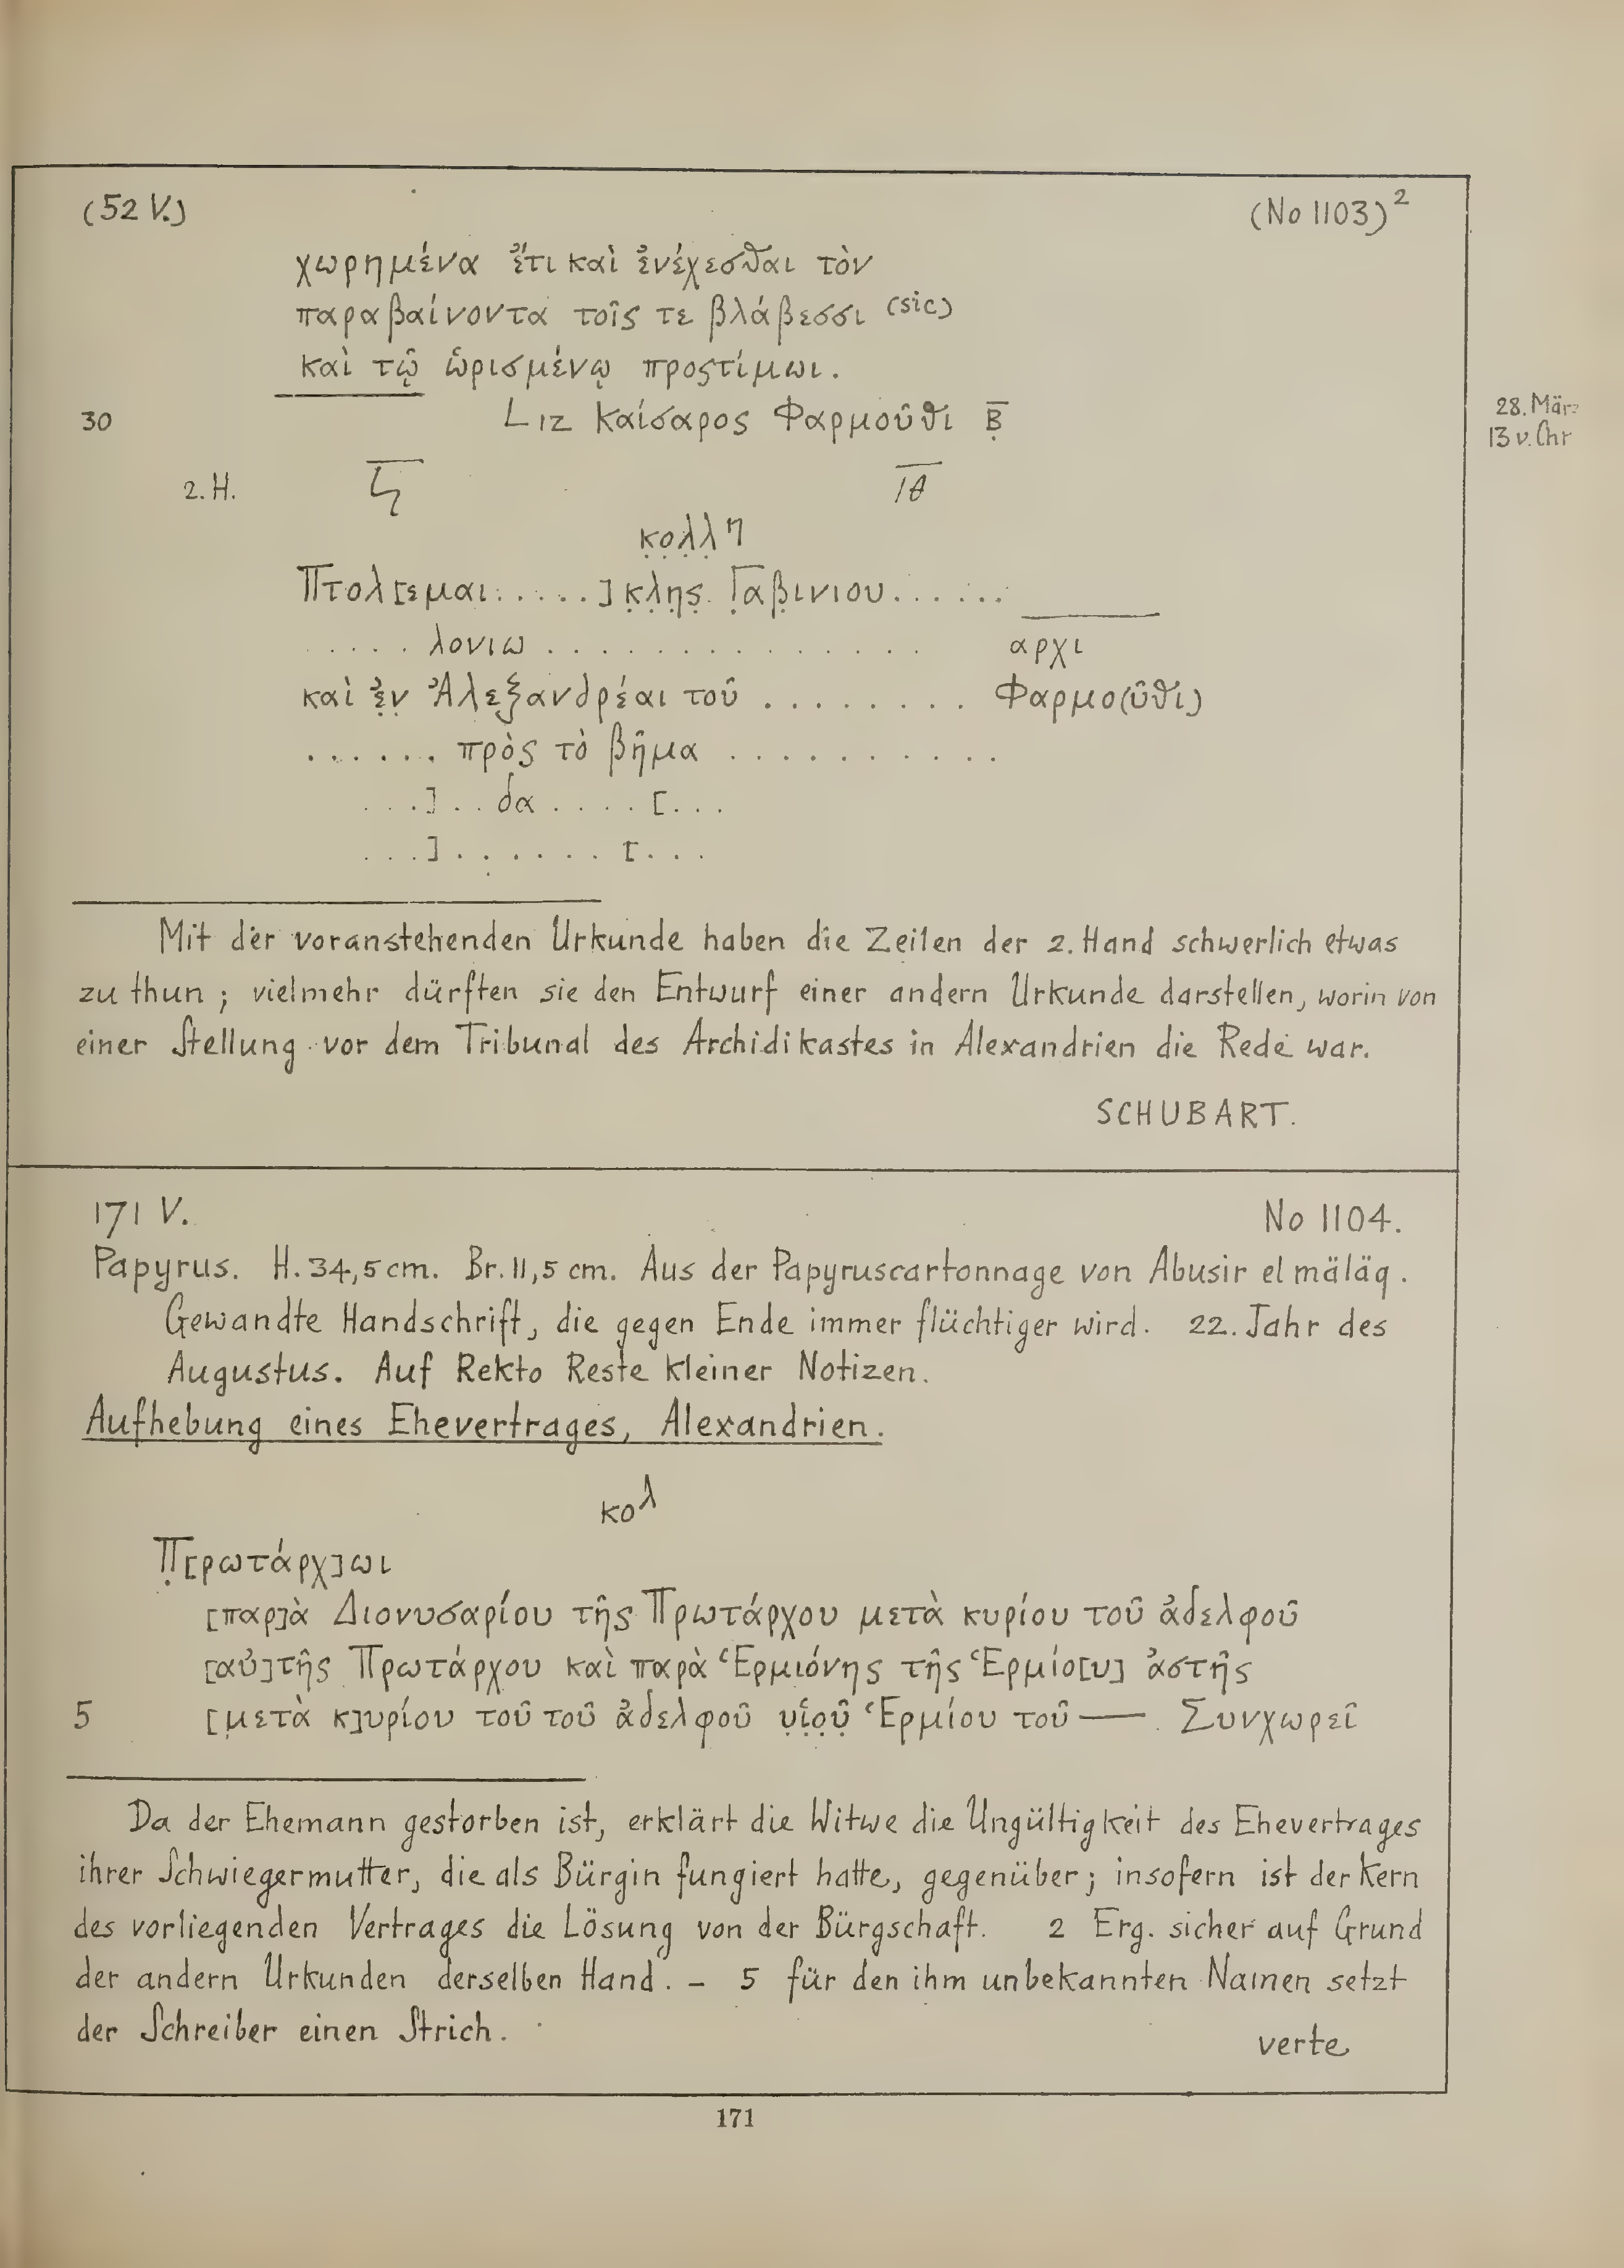 (52 V.) (No 1103)²
χωρημένα ἔτι καὶ ἐνέχεσθαι τὸν
παραβαίνοντα τοῖς τε βλάβεσσι (sic)
καὶ τῷ ὡρισμένῳ προςτίμωι.
30 L ιζ Καίσαρος Φαρμοῦθι β̣̅ 28. März
13 v. Chr
2. H. ι̅θ̅
κ̣ο̣λ̣λ̣η
Πτολ[εμαι.....]κ̣λ̣η̣ς̣ Γ̣αβ̣ινιου......
..... λονιω .............. αρχι
καὶ ἐ̣ν̣ Ἀλεξανδρέαι τοῦ ........ Φαρμο(ῦθι)
...... πρὸς τὸ βῆμα ..........
...]..δα....[...
...].......[...
Mit der voranstehenden Urkunde haben die Zeilen der 2. Hand schwerlich etwas
zu thun; vielmehr dürften sie den Entwurf einer andern Urkunde darstellen, worin von
einer Stellung vor dem Tribunal des Archidikastes in Alexandrien die Rede war.
SCHUBART.
171 V. No 1104.
Papyrus. H. 34,5 cm. Br. 11,5 cm. Aus der Papyruscartonnage von Abusir el mäläq.
Gewandte Handschrift, die gegen Ende immer flüchtiger wird. 22. Jahr des
Augustus. Auf Rekto Reste kleiner Notizen.
Aufhebung eines Ehevertrages, Alexandrien.
κολ
Π̣[ρωτάρχ]ωι
[παρ]ὰ Διονυσαρίου τῆς Πρωτάρχου μετὰ κυρίου τοῦ ἀδελφοῦ
[αὐ]τῆς Πρωτάρχου καὶ παρὰ Ἑρμιόνης τῆς Ἑρμίο[υ] ἀστῆς
5 [μετὰ κ]υρίου τοῦ τοῦ ἀδελφοῦ υ̣ἱ̣ο̣ῦ̣ Ἑρμίου τοῦ — . Συνχωρεῖ
Da der Ehemann gestorben ist, erklärt die Witwe die Ungültigkeit des Ehevertrages
ihrer Schwiegermutter, die als Bürgin fungiert hatte, gegenüber; insofern ist der Kern
des vorliegenden Vertrages die Lösung von der Bürgschaft. 2 Erg. sicher auf Grund
der andern Urkunden derselben Hand. – 5 für den ihm unbekannten Namen setzt
der Schreiber einen Strich.
verte
171